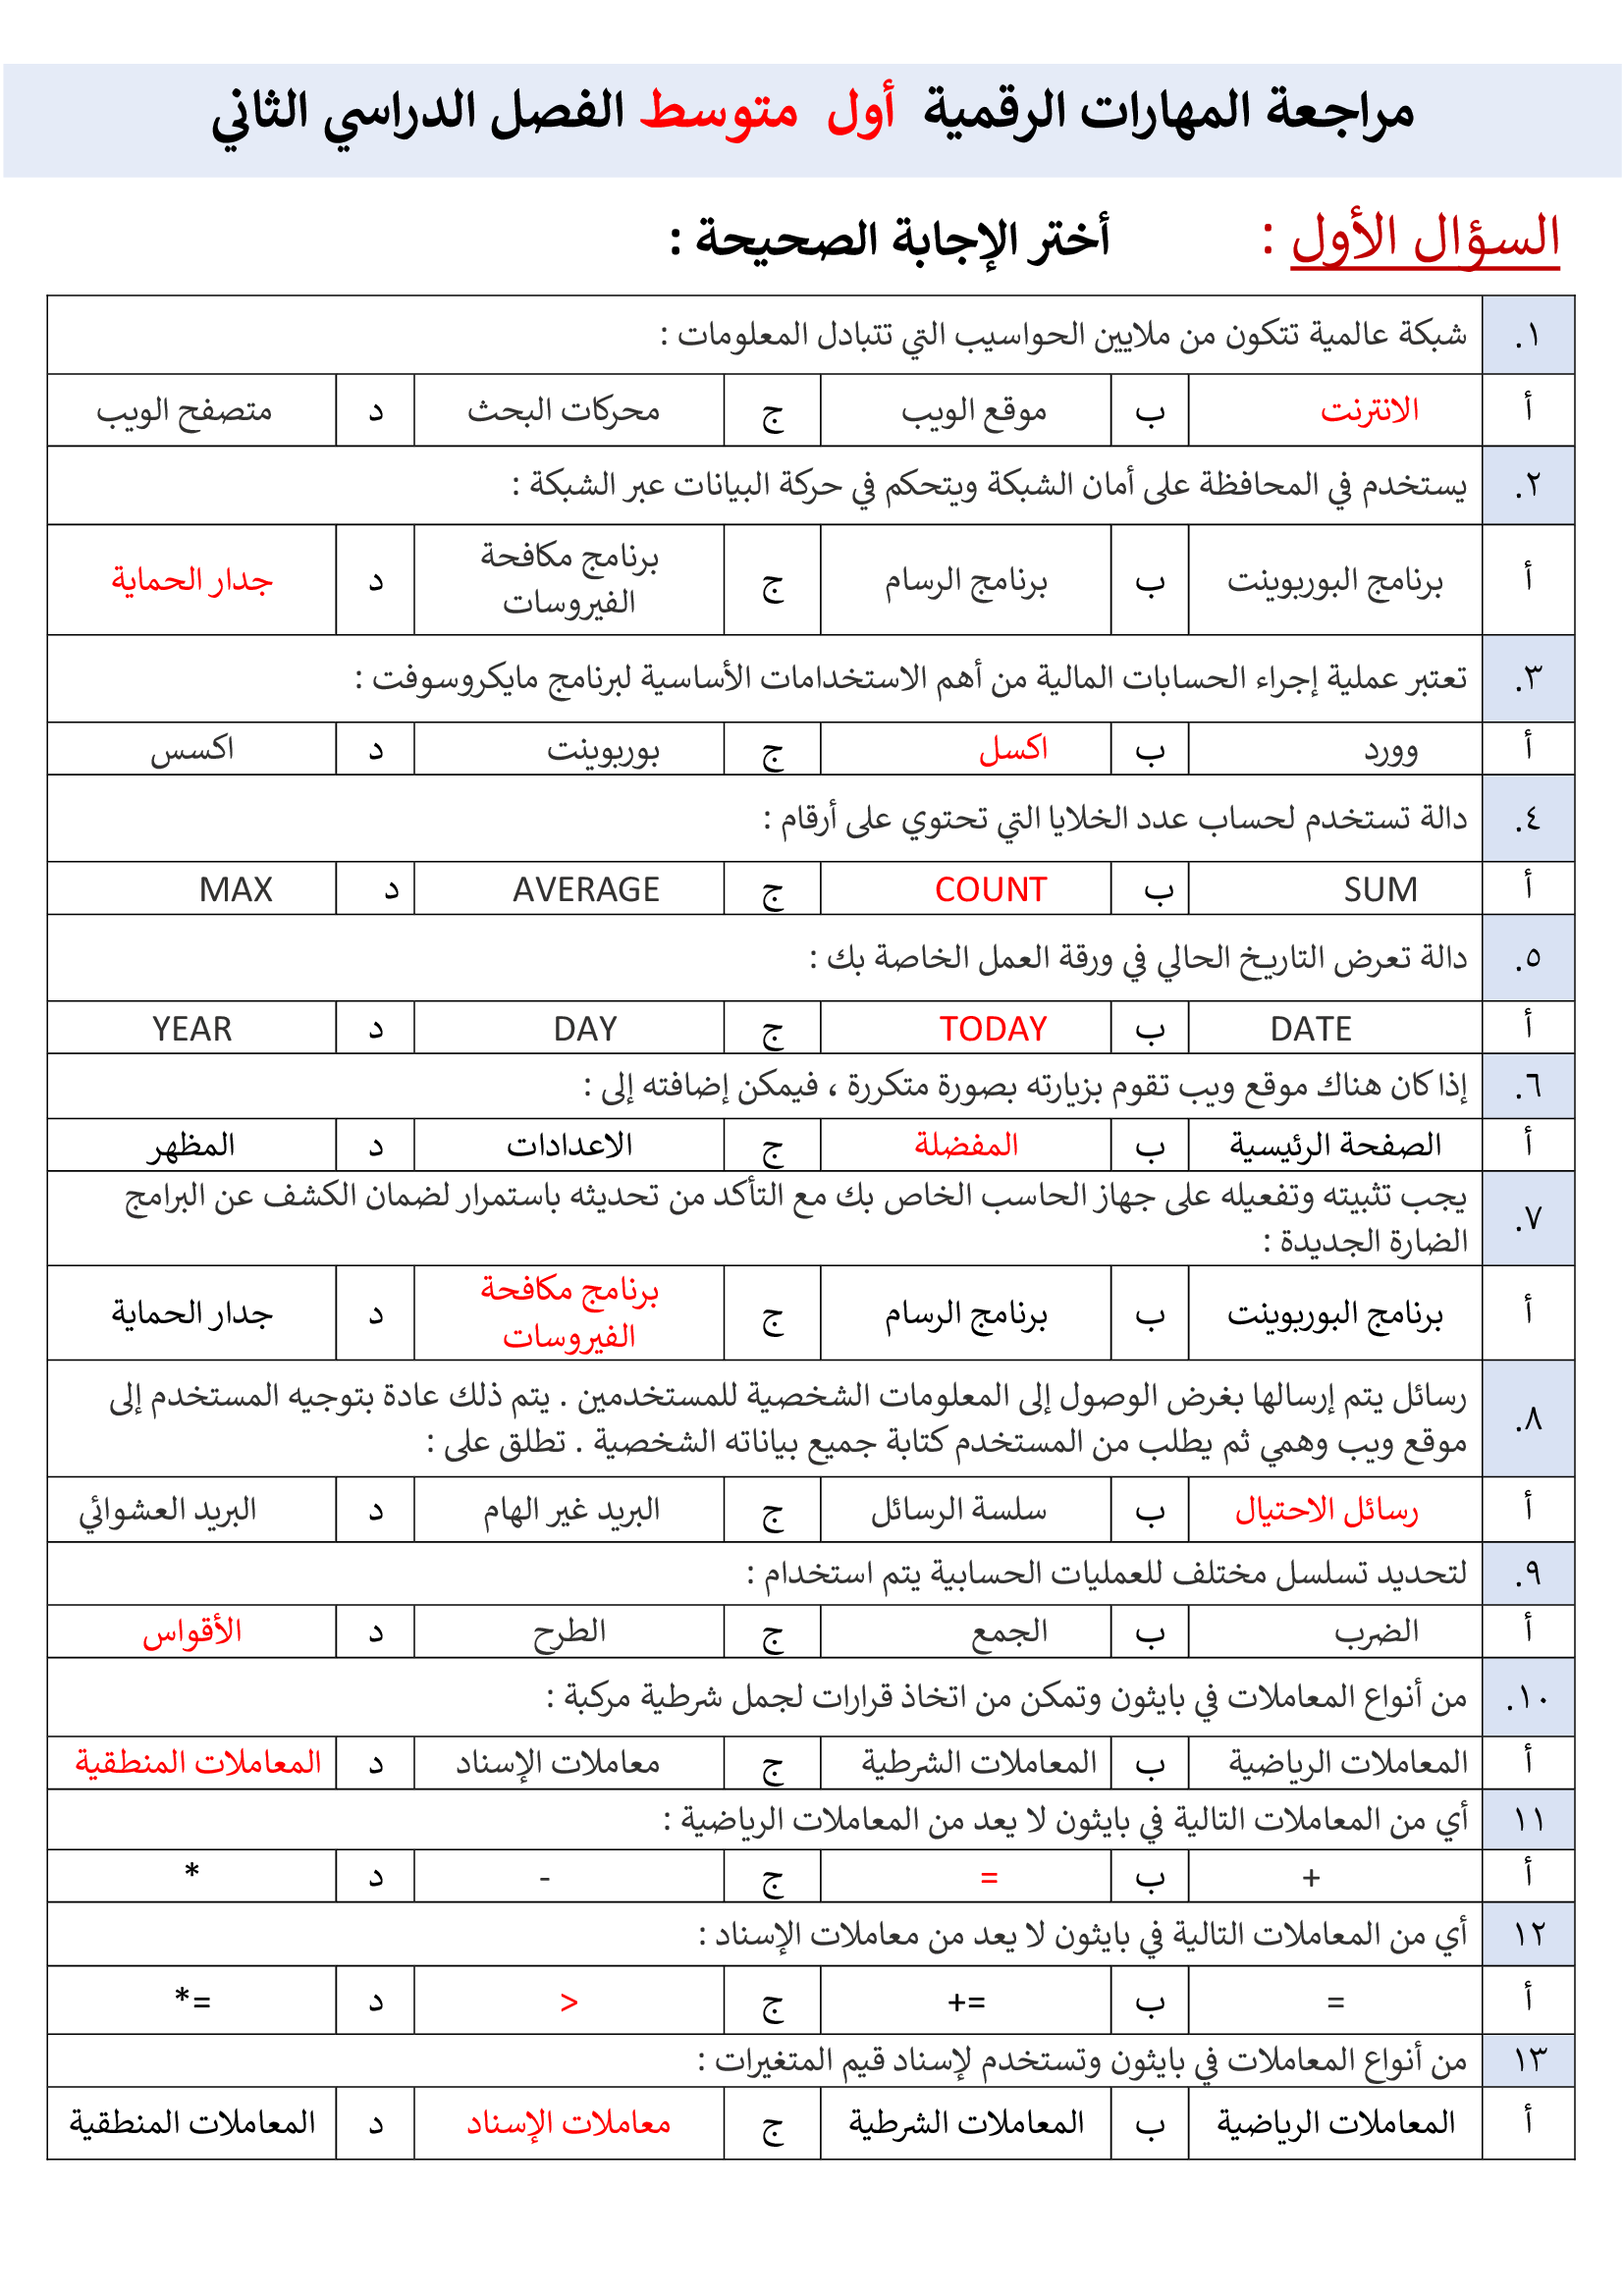 مراجعة المهارات الرقمية أول متوسط الفصل الدراسي الثاني
السؤال الأول : أختر الإجابة الصحيحة :
١. شبكة عالمية تتكون من ملايين الحواسيب التي تتبادل المعلومات :
أ الانترنت ب موقع الويب ج محركات البحث د متصفح الويب
٢. يستخدم في المحافظة على أمان الشبكة ويتحكم في حركة البيانات عبر الشبكة :
أ برنامج البوربوينت ب برنامج الرسام ج برنامج مكافحة الفيروسات د جدار الحماية
٣. تعتبر عملية إجراء الحسابات المالية من أهم الاستخدامات الأساسية لبرنامج مايكروسوفت :
أ وورد ب اكسل ج بوربوينت د اكسس
٤. دالة تستخدم لحساب عدد الخلايا التي تحتوي على أرقام :
أ SUM ب COUNT ج AVERAGE د MAX
٥. دالة تعرض التاريخ الحالي في ورقة العمل الخاصة بك :
أ DATE ب TODAY ج DAY د YEAR
٦. إذا كان هناك موقع ويب تقوم بزيارته بصورة متكررة ، فيمكن إضافته إلى :
أ الصفحة الرئيسية ب المفضلة ج الاعدادات د المظهر
٧. يجب تثبيته وتفعيله على جهاز الحاسب الخاص بك مع التأكد من تحديثه باستمرار لضمان الكشف عن البرامج
الضارة الجديدة :
أ برنامج البوربوينت ب برنامج الرسام ج برنامج مكافحة الفيروسات د جدار الحماية
٨. رسائل يتم إرسالها بغرض الوصول إلى المعلومات الشخصية للمستخدمين . يتم ذلك عادة بتوجيه المستخدم إلى
موقع ويب وهمي ثم يطلب من المستخدم كتابة جميع بياناته الشخصية . تطلق على :
أ رسائل الاحتيال ب سلسة الرسائل ج البريد غير الهام د البريد العشوائي
٩. لتحديد تسلسل مختلف للعمليات الحسابية يتم استخدام :
أ الضرب ب الجمع ج الطرح د الأقواس
١٠. من أنواع المعاملات في بايثون وتمكن من اتخاذ قرارات لجمل شرطية مركبة :
أ المعاملات الرياضية ب المعاملات الشرطية ج معاملات الإسناد د المعاملات المنطقية
١١ أي من المعاملات التالية في بايثون لا يعد من المعاملات الرياضية :
أ + ب = ج - د *
١٢ أي من المعاملات التالية في بايثون لا يعد من معاملات الإسناد :
أ = ب += ج > د *=
١٣ من أنواع المعاملات في بايثون وتستخدم لإسناد قيم المتغيرات :
أ المعاملات الرياضية ب المعاملات الشرطية ج معاملات الإسناد د المعاملات المنطقية